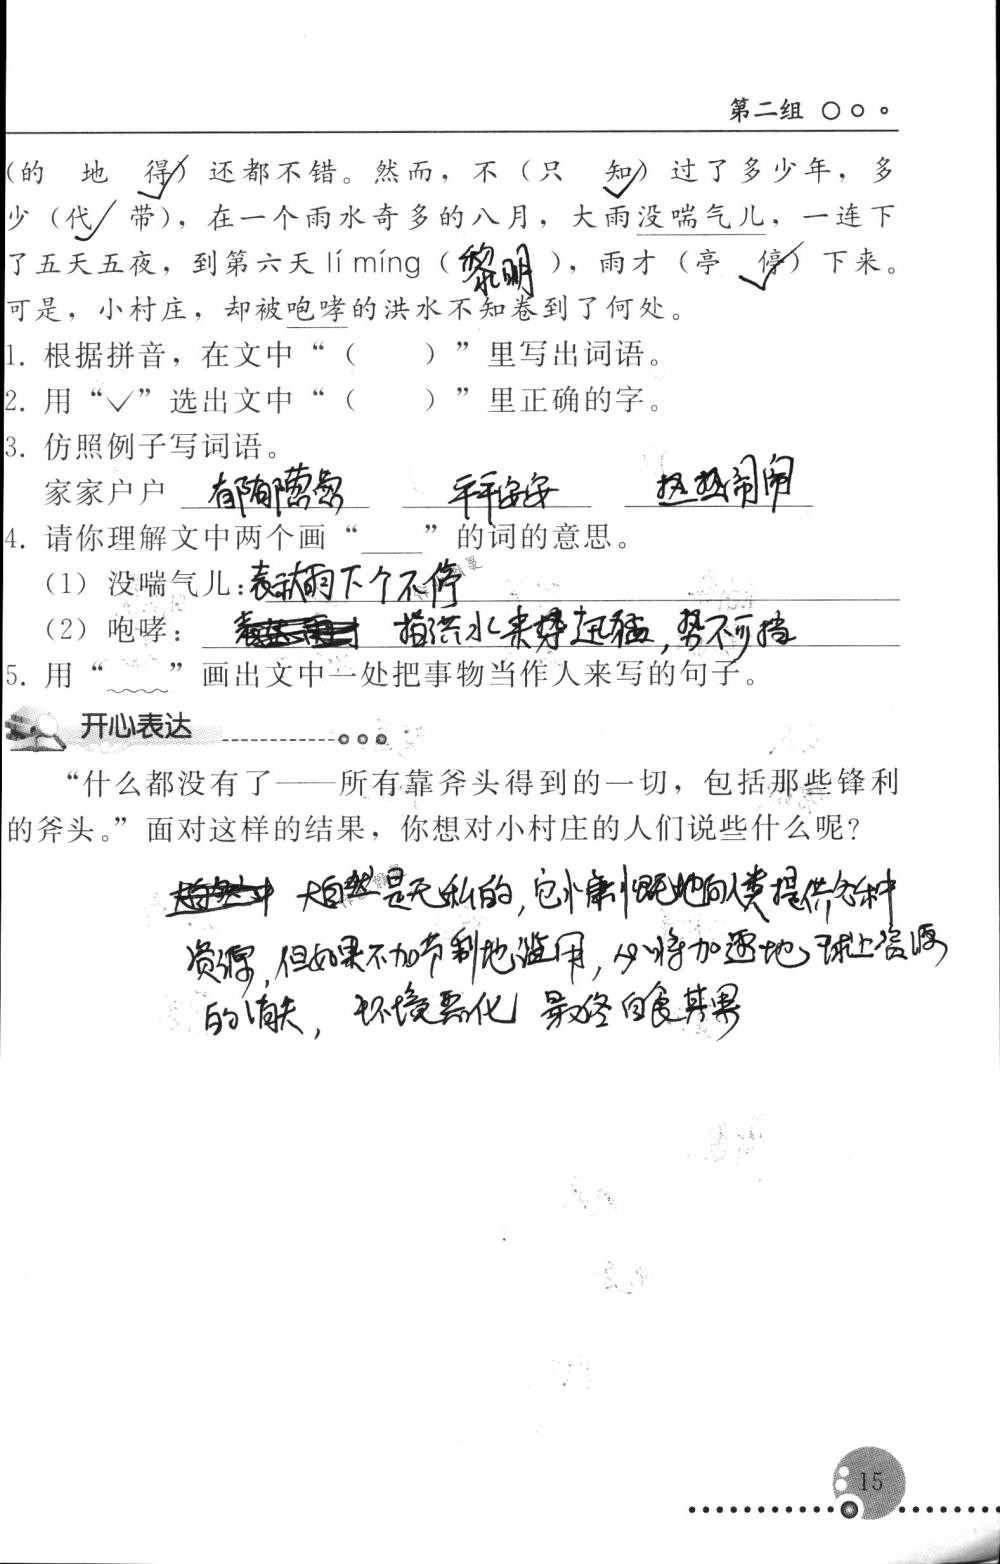 第二组
(的 地 得) 还都不错。然而，不（只 知）过了多少年，多
少（代 带），在一个雨水奇多的八月，大雨没喘气儿，一连下
了五天五夜，到第六天 lí míng（黎明），雨才（亭 停）下来。
可是，小村庄，却被咆哮的洪水不知卷到了何处。
1. 根据拼音，在文中“（ ）”里写出词语。
2. 用“✓”选出文中“（ ）”里正确的字。
3. 仿照例子写词语。
家家户户 郁郁葱葱 平平安安 热热闹闹
4. 请你理解文中两个画“____”的词的意思。
(1) 没喘气儿：表示雨下个不停
(2) 咆哮： 指洪水来势迅猛，势不可挡
5. 用“﹏﹏”画出文中一处把事物当作人来写的句子。
开心表达
“什么都没有了——所有靠斧头得到的一切，包括那些锋利
的斧头。”面对这样的结果，你想对小村庄的人们说些什么呢？
大自然是无私的，它慷慨地向人类提供各种
资源，但如果不加节制地滥用，必将加速地球上资源
的消失，环境恶化 最终自食其果
15